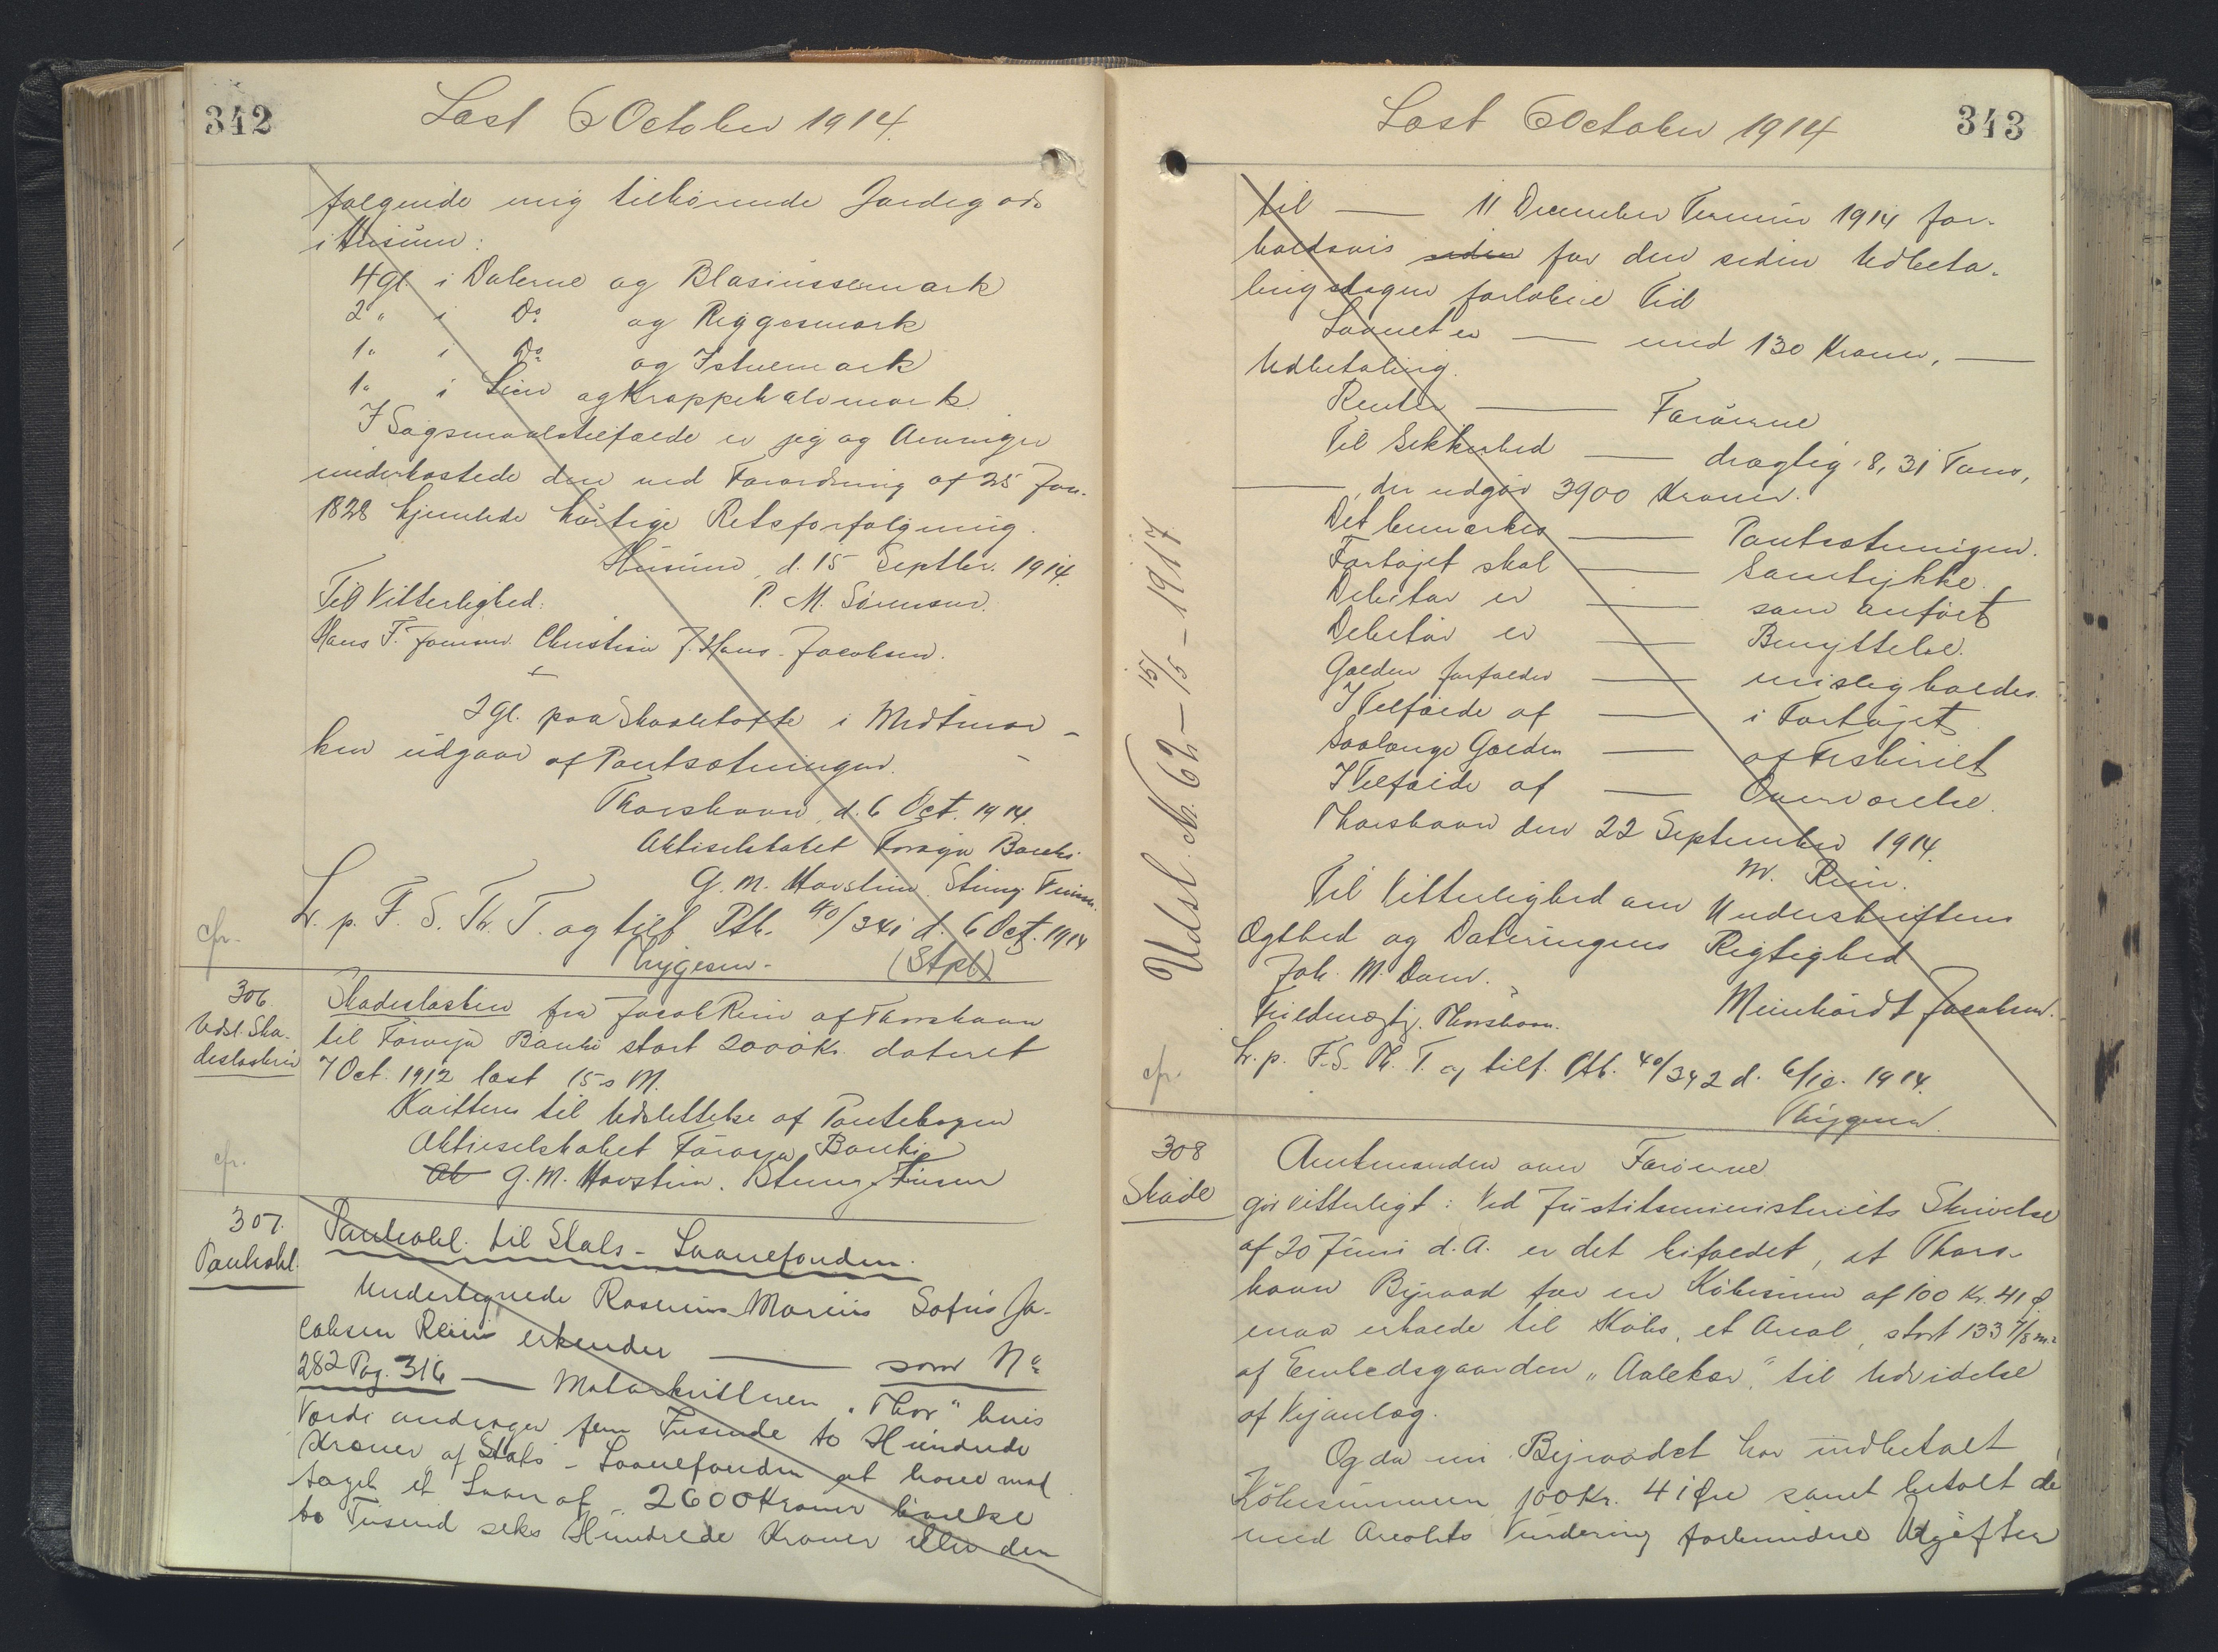 342
Læst 6 October 1914.
følgende mig tilhørende Jordegods
i Husum:
4 Gl. i Dalerne og Blasiussemark
2 " i Do og Riggesmark
1 " i Do og Istuemark
1 " i Lien og Kroppehalvmark.
I Søgsmaalstilfælde er jeg og Arvinger
underkastede den ved Forordning af 25 Jan.
1828 hjemlede hurtige Retsforfølgning.
Husum, d. 15 Septbr. 1914
Til Vitterlighed: P. M. Sørensen.
Hans F. Joensen. Christian J. Hans-Jacobsen.
2 Gl. paa Skaaletofte i Midtmar-
ken udgaar af Pantsætningen.
Thorshavn, d. 6 Oct. 1914.
Aktieselskabet Førøya Banki
G. M. Havsteen. Steing. Finsen.
L. p. F. S. Th. T. og tilf. Ptb. 40/341 d. 6 Oct. 1914
cfr.
Trygesen. (Stpl)
306.
Udsl. Ska-
desløsbrev
Skadesløsbrev fra Jacob Rein af Thorshavn
til Føroya Banki stort 2000 Kr. dateret
7 Oct. 1912 læst 15 s M.
Kvitteres til Udslettelse af Pantebogen
Aktieselskabet Føroya Banki
cfr.
At G. M. Havsteen. Steing. Finsen
307.
Pantobl.
Pantobl. til Stats-Laanefonden.
Undertegnede Rasmus Marius Sofus Ja-
cobsen Rein erkender — som No
282 Pag. 316 — Motorkutteren "Thor" hvis
Værdi andrager fem Tusinde to Hundrede
Kroner af Stats-Laanefonden at have mod
taget et Laan af 2600 Kroner hvilke
to Tusind seks Hundrede Kroner eller den
Læst 6 October 1914
343
til — 11 December Termin 1914 for-
holdsvis siden for den siden Udbeta-
lingsdagen forløbne Tid
Laanet er — med 130 Kroner, —
Udbetaling.
Renter — Færøerne
Til Sikkerhed — drægtig 8,31 Tons,
—, der udgør 3900 Kroner.
Det bemærkes — Pantsætningen.
Fartøjet skal — Samtykke.
Debitor er — som anført
Debitor er — Benyttelse.
Gælden forfalder — misligholdes.
I Tilfælde af — i Fartøjet
Saalænge Gælden — af Fiskeriet
I Tilfælde af — Overværelse.
Thorshavn den 22 September 1914.
M. Rein.
Til Vitterlighed om Underskriftens
Ægthed og Dateringens Rigtighed
Joh. M. Dam. Meinhardt Jacobsen.
Fuldmægtig. Thorshavn.
L. p. F. S. Th. T. og tilf. Ptb. 40/342 d. 6/10. 1914.
cfr.
Trygesen.
Udsl. No. 62 — 15/5 — 1917
308
Skøde
Amtmanden over Færøerne
gør vitterligt: Ved Justitsministeriets Skrivelse
af 20 Juni d. A. er det bifaldet, at Thors-
havn Byraad for en Købesum af 100 Kr. 41 Ø
maa erholde til Købs, et Areal, stort 133 7/8 m2
af Embedsgaarden "Aaleker", til Udvidelse
af Vejanlæg.
Og da nu Byraadet har indbetalt
Købesummen 100 Kr. 41 Øre samt betalt de
med Arealets Vurdering forbundne Udgifter